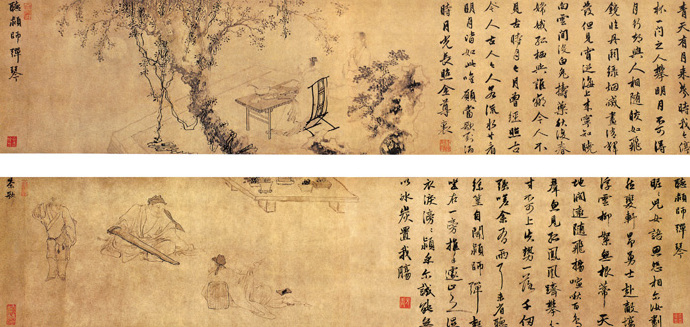 青天有月來幾時我今停
杯一問之人攀明月不可得
月行却與人相隨皎如飛
鏡臨丹闕綠烟滅盡清輝
發但見宵從海上來寧知曉
向雲間沒白兔擣藥秋復春
嫦娥孤栖與誰鄰今人不
見古時月今月曾經照古
今人古人若流水共看
明月皆如此唯願當歌對酒
時月光長照金尊裏
聽穎師彈琴
聽穎師彈琴
昵昵兒女語恩怨相爾汝劃
然變軒昂勇士赴敵場
浮雲柳絮無根蒂天
地闊遠隨飛揚喧啾百鳥
群忽見孤鳳凰躋攀分
寸不可上失勢一落千丈
強嗟余有兩耳未省聽
絲篁自聞穎師彈起
坐在一旁推手遽止之濕
衣淚滂滂穎乎爾誠能無
以冰炭置我腸
茶歌